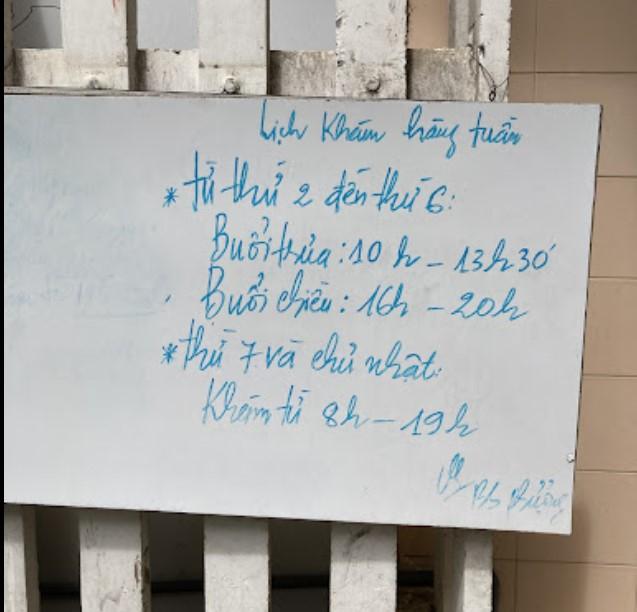 Lịch Khám hàng tuần
* Từ thứ 2 đến thứ 6:
Buổi trưa: 10h - 13h30'
Buổi chiều: 16h - 20h
* Thứ 7 và chủ nhật:
Khám từ 8h - 19h
BS